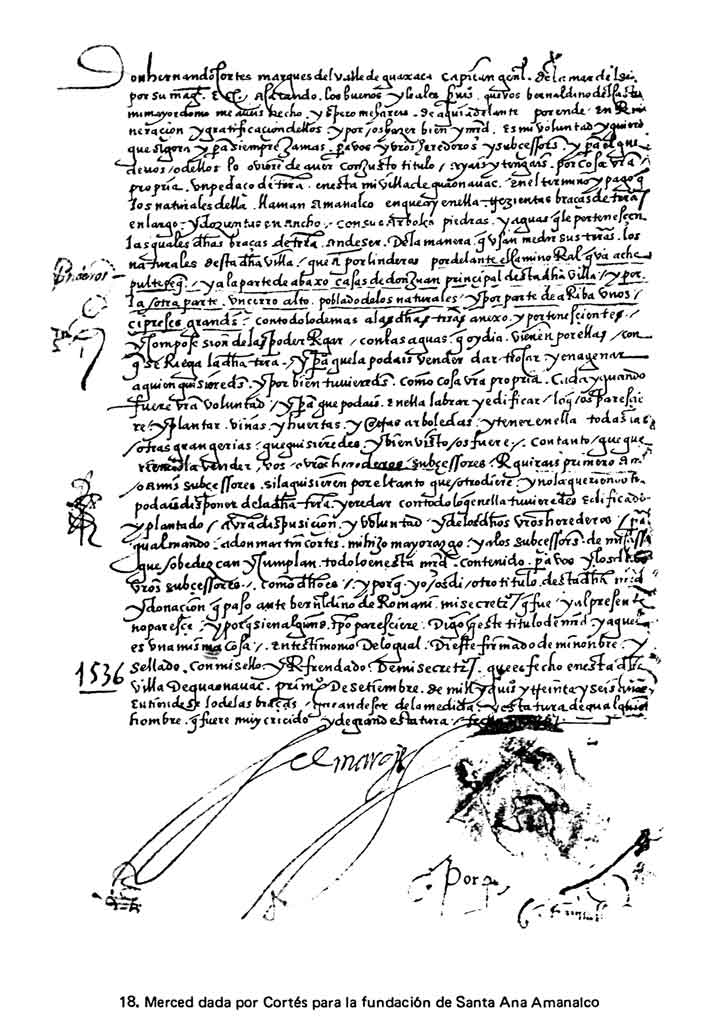 Don hernando Cortes marques del Valle de guaxaca Capitan genl. de la mar del
por su mag. Acatando los buenos que vos bernaldino del
mi mayordomo me aveis hecho y espero me hareis de aqui adelante por ende en Remu
neracion y gratificacion dellos y por os hazer bien y mrd. es mi voluntad y quiero
que agora y pa siempre jamas pa vos y vros herederos y subcessores y pa el que
de vos o dellos lo oviere de aver con justo titulo ayais y tengais por cosa vra
propria un pedaco de trra en esta mi villa de quaonavac en el termino y pago q
los naturales della llaman Amanalco en que ay en ella trezientas bracas de trra
en largo y dozientas en ancho con sus Arboles piedras y aguas q le pertenescen
las quales dhas bracas de trra an de ser de la manera q usan medir sus trras los
naturales desta dha villa que a por linderos por delante el camino Ral q va a cha
pultepeq y a la parte de abaxo casas de don Juan principal desta dha villa y por
la otra parte un cerro alto poblado de los naturales y por parte de aRiba unos
cipreses grandes con todo lo demas a las dhas trras anexo y pertenesciente
con las aguas q oy dia vienen por ellas con
q se Riega la dha trra y pa que la podais vender dar trocar y enagenar
a quien quisieredes y por bien tuvieredes como cosa vra propria cada y quando
fuere vra voluntad y pa que podais en ella labrar y edificar lo q os paresci
re y plantar viñas y huertas y arboledas y tener en ella todas las
otras grangerias que quisieredes y bien visto os fuere con tanto que que
riendola vender vos o vros herederos subcessores Requirais primero a mi
o a mis subcessores si la quisieren por el tanto que otro diere y no la queriendo
podais disponer de la dha trra y eredar con todo lo q en ella tuvieredes edificado
y plantado a vra dispusicion y voluntad y de los dhos vros herederos pa
qual mando a don martin cortes mi hijo mayorazgo y a los subcessores de mi
que obedezcan y cumplan todo lo en esta mrd contenido pa vos y los dhos
vros subcessores como dho es y porq yo os di otro titulo desta dha mrd
y donacion q paso ante bernaldino de Romani mi secreto q fue y al presente
no paresce y porq si en algun tpo paresciere Digo q este titulo de mrd y aquel
es una misma cosa en testimonio de lo qual Di este firmado de mi nonbre y
Sellado con mi sello y Refrendado de mi secreto que es fecho en esta dha
villa De quaonavac primo De Setiembre de mill y quis y treinta y seis
Entiendese lo de las bracas que an de ser de la medida y estatura de qualquier
hombre q fuere muy crecido y de grand estatura fecha
1536
el marques
Por
18. Merced dada por Cortés para la fundación de Santa Ana Amanalco